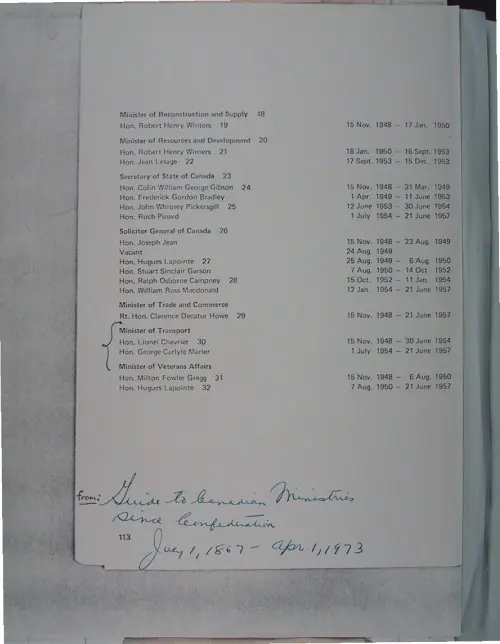 Minister of Reconstruction and Supply 18
Hon. Robert Henry Winters 19 15 Nov. 1948 – 17 Jan. 1950
Minister of Resources and Development 20
Hon. Robert Henry Winters 21 18 Jan. 1950 – 16 Sept. 1953
Hon. Jean Lesage 22 17 Sept. 1953 – 15 Dec. 1953
Secretary of State of Canada 23
Hon. Colin William George Gibson 24 15 Nov. 1948 – 31 Mar. 1949
Hon. Frederick Gordon Bradley 1 Apr. 1949 – 11 June 1953
Hon. John Whitney Pickersgill 25 12 June 1953 – 30 June 1954
Hon. Roch Pinard 1 July 1954 – 21 June 1957
Solicitor General of Canada 26
Hon. Joseph Jean 15 Nov. 1948 – 23 Aug. 1949
Vacant 24 Aug. 1949
Hon. Hugues Lapointe 27 25 Aug. 1949 – 6 Aug. 1950
Hon. Stuart Sinclair Garson 7 Aug. 1950 – 14 Oct. 1952
Hon. Ralph Osborne Campney 28 15 Oct. 1952 – 11 Jan. 1954
Hon. William Ross Macdonald 12 Jan. 1954 – 21 June 1957
Minister of Trade and Commerce
Rt. Hon. Clarence Decatur Howe 29 15 Nov. 1948 – 21 June 1957
Minister of Transport
Hon. Lionel Chevrier 30 15 Nov. 1948 – 30 June 1954
Hon. George Carlyle Marler 1 July 1954 – 21 June 1957
Minister of Veterans Affairs
Hon. Milton Fowler Gregg 31 15 Nov. 1948 – 6 Aug. 1950
Hon. Hugues Lapointe 32 7 Aug. 1950 – 21 June 1957
from: Guide to Canadian Ministries
since Confederation
113
July 1, 1867 – Apr. 1, 1973